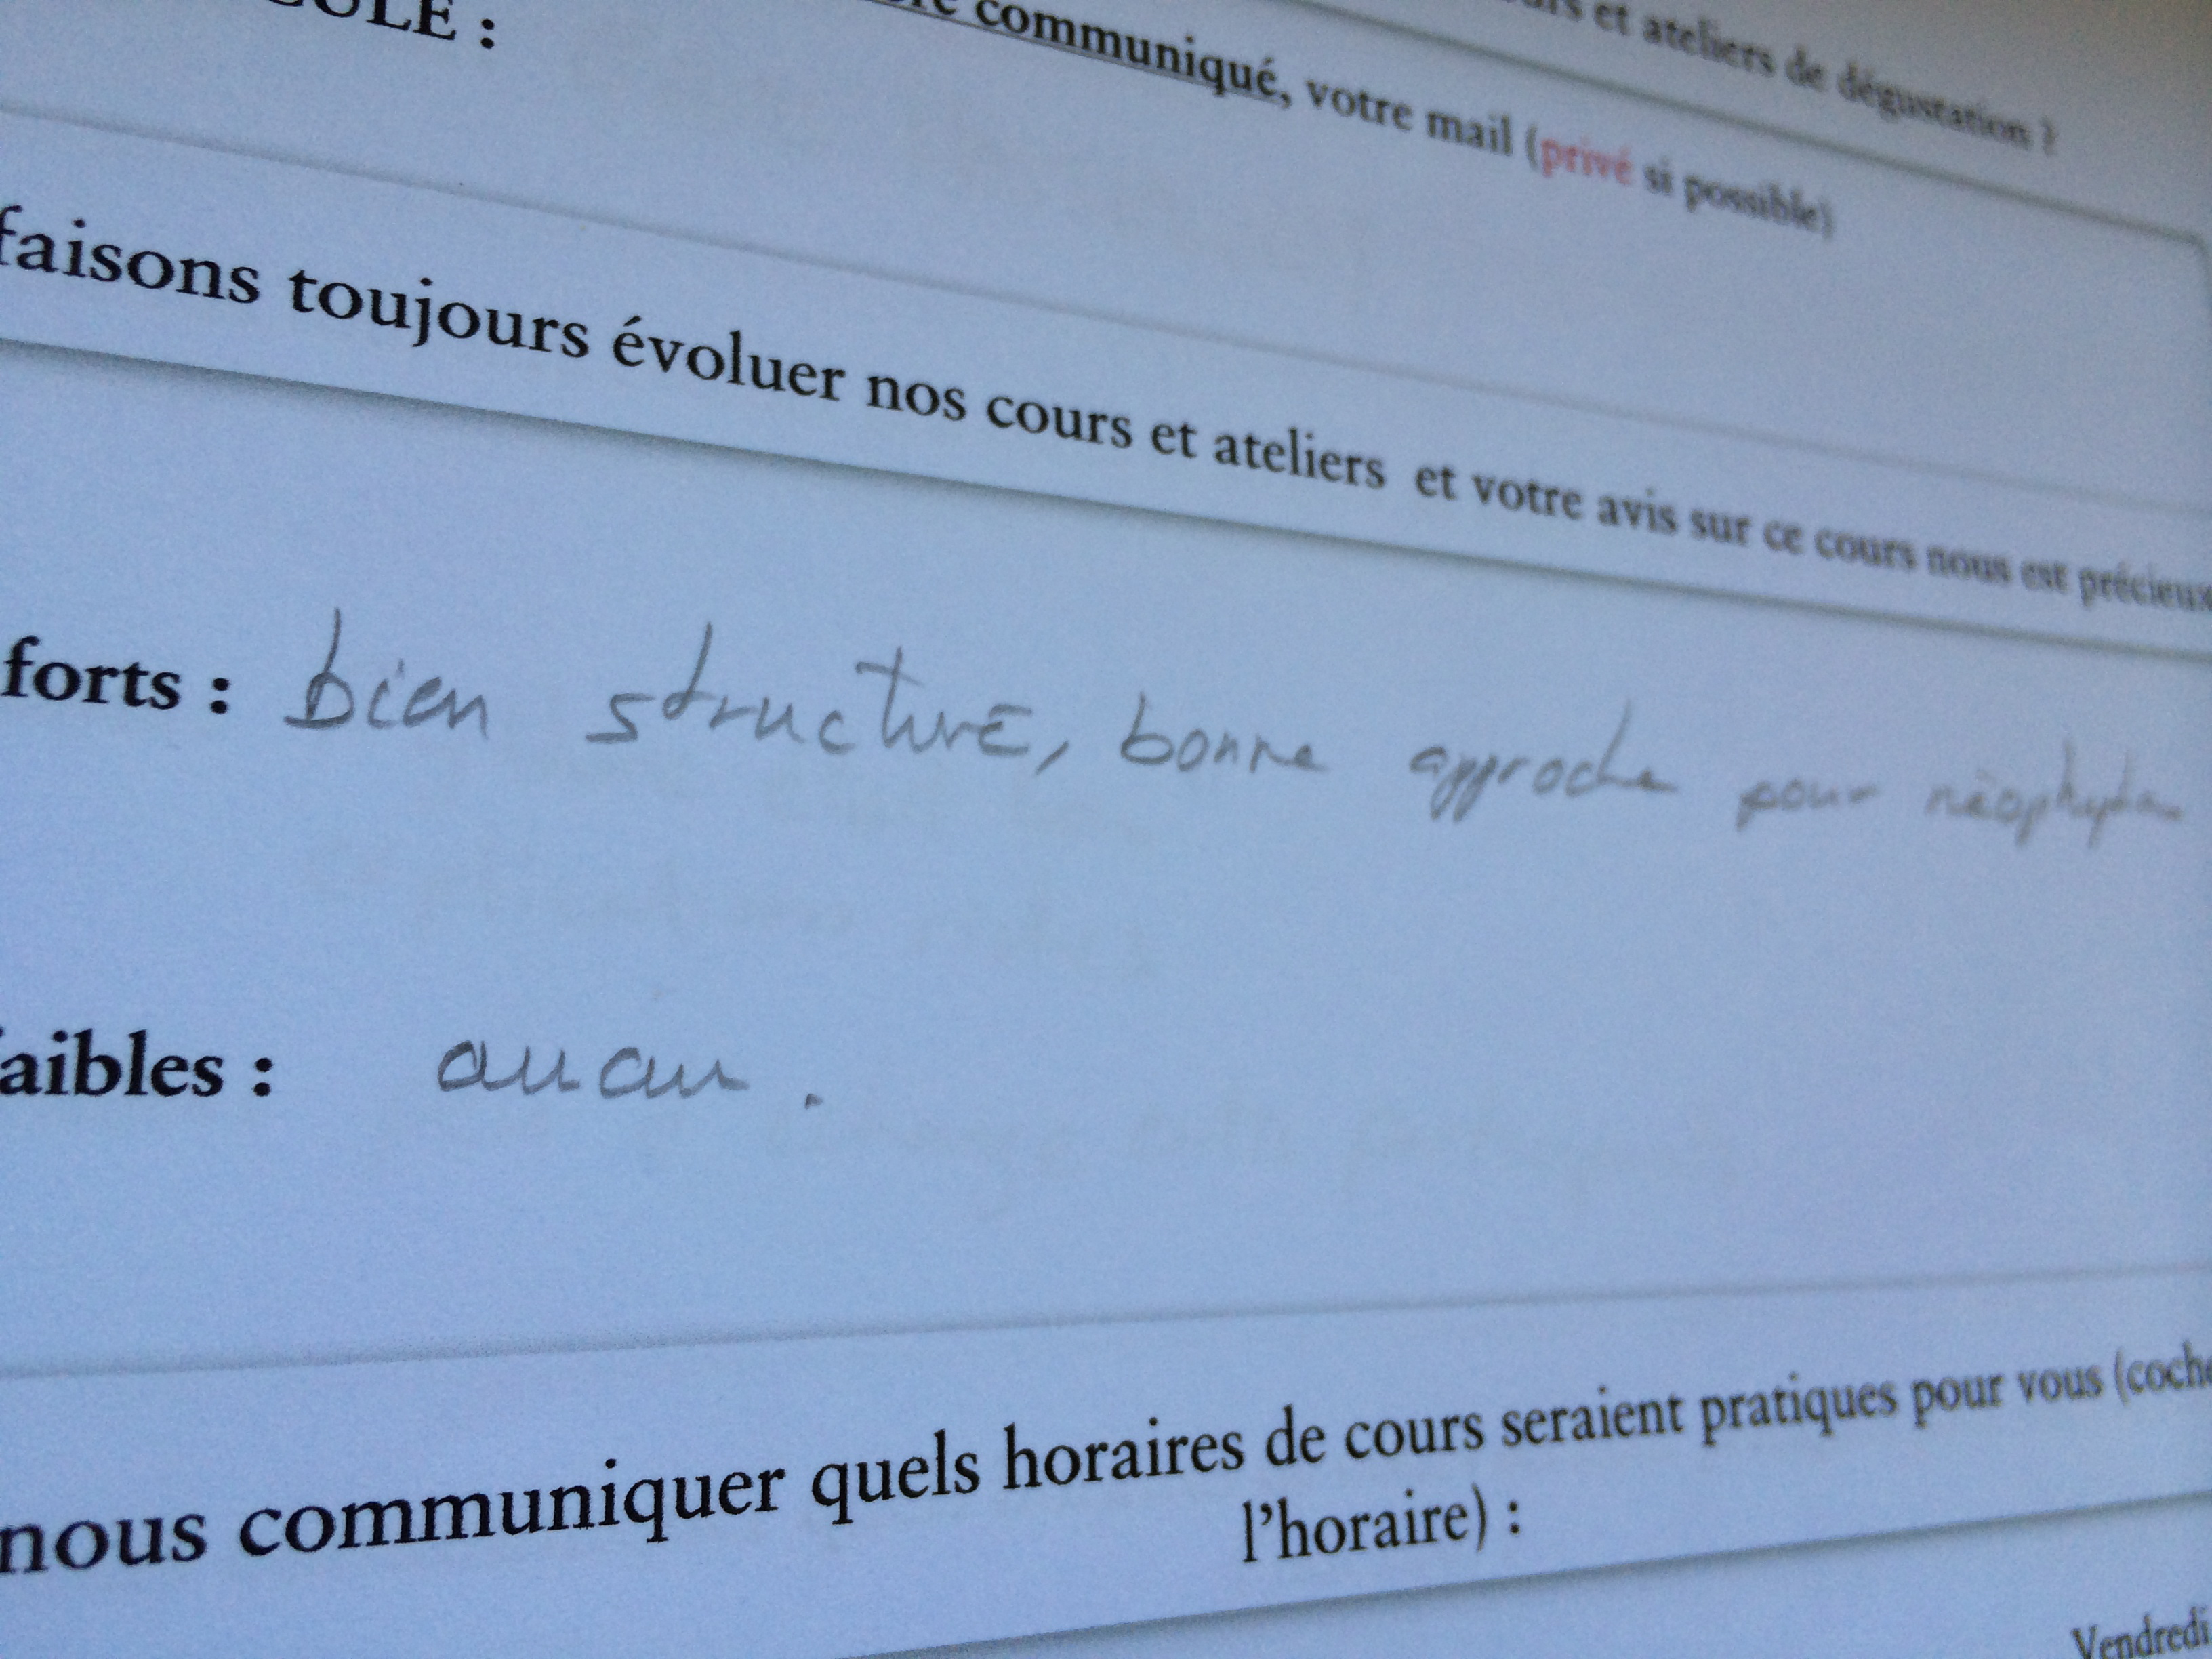 et ateliers de dégustation ?
communiqué, votre mail (privé si possible)
faisons toujours évoluer nos cours et ateliers et votre avis sur ce cours nous est précieux
forts : bien structuré, bonne approche pour néophytes
aibles : aucun .
nous communiquer quels horaires de cours seraient pratiques pour vous (coche
l'horaire) :
Vendredi